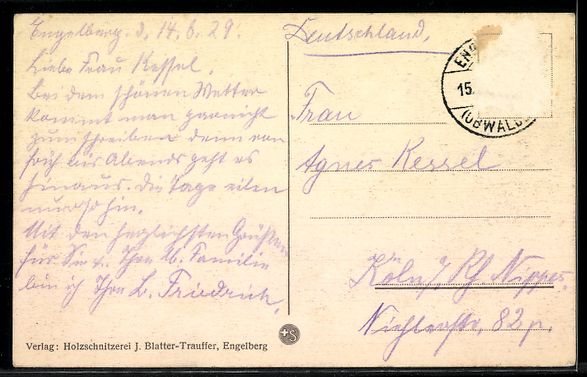 Engelberg. d. 14.6.29.
Liebe Frau Kessel.
Bei dem schönen Wetter
kommt man garnicht
zum schreiben denn von
früh bis Abends geht es
hinaus. Die Tage eilen
nur so hin.
Mit den herzlichsten Grüßen
für Sie u. Ihre lb. Familie
bin ich Ihre L. Friedrich.
Verlag: Holzschnitzerei J. Blatter-Trauffer, Engelberg
Deutschland.
15.
(OBWALD
Frau
Agnes Kessel
Köln a/ Rh. Nippes.
Niehlerstr. 82 p.
+S